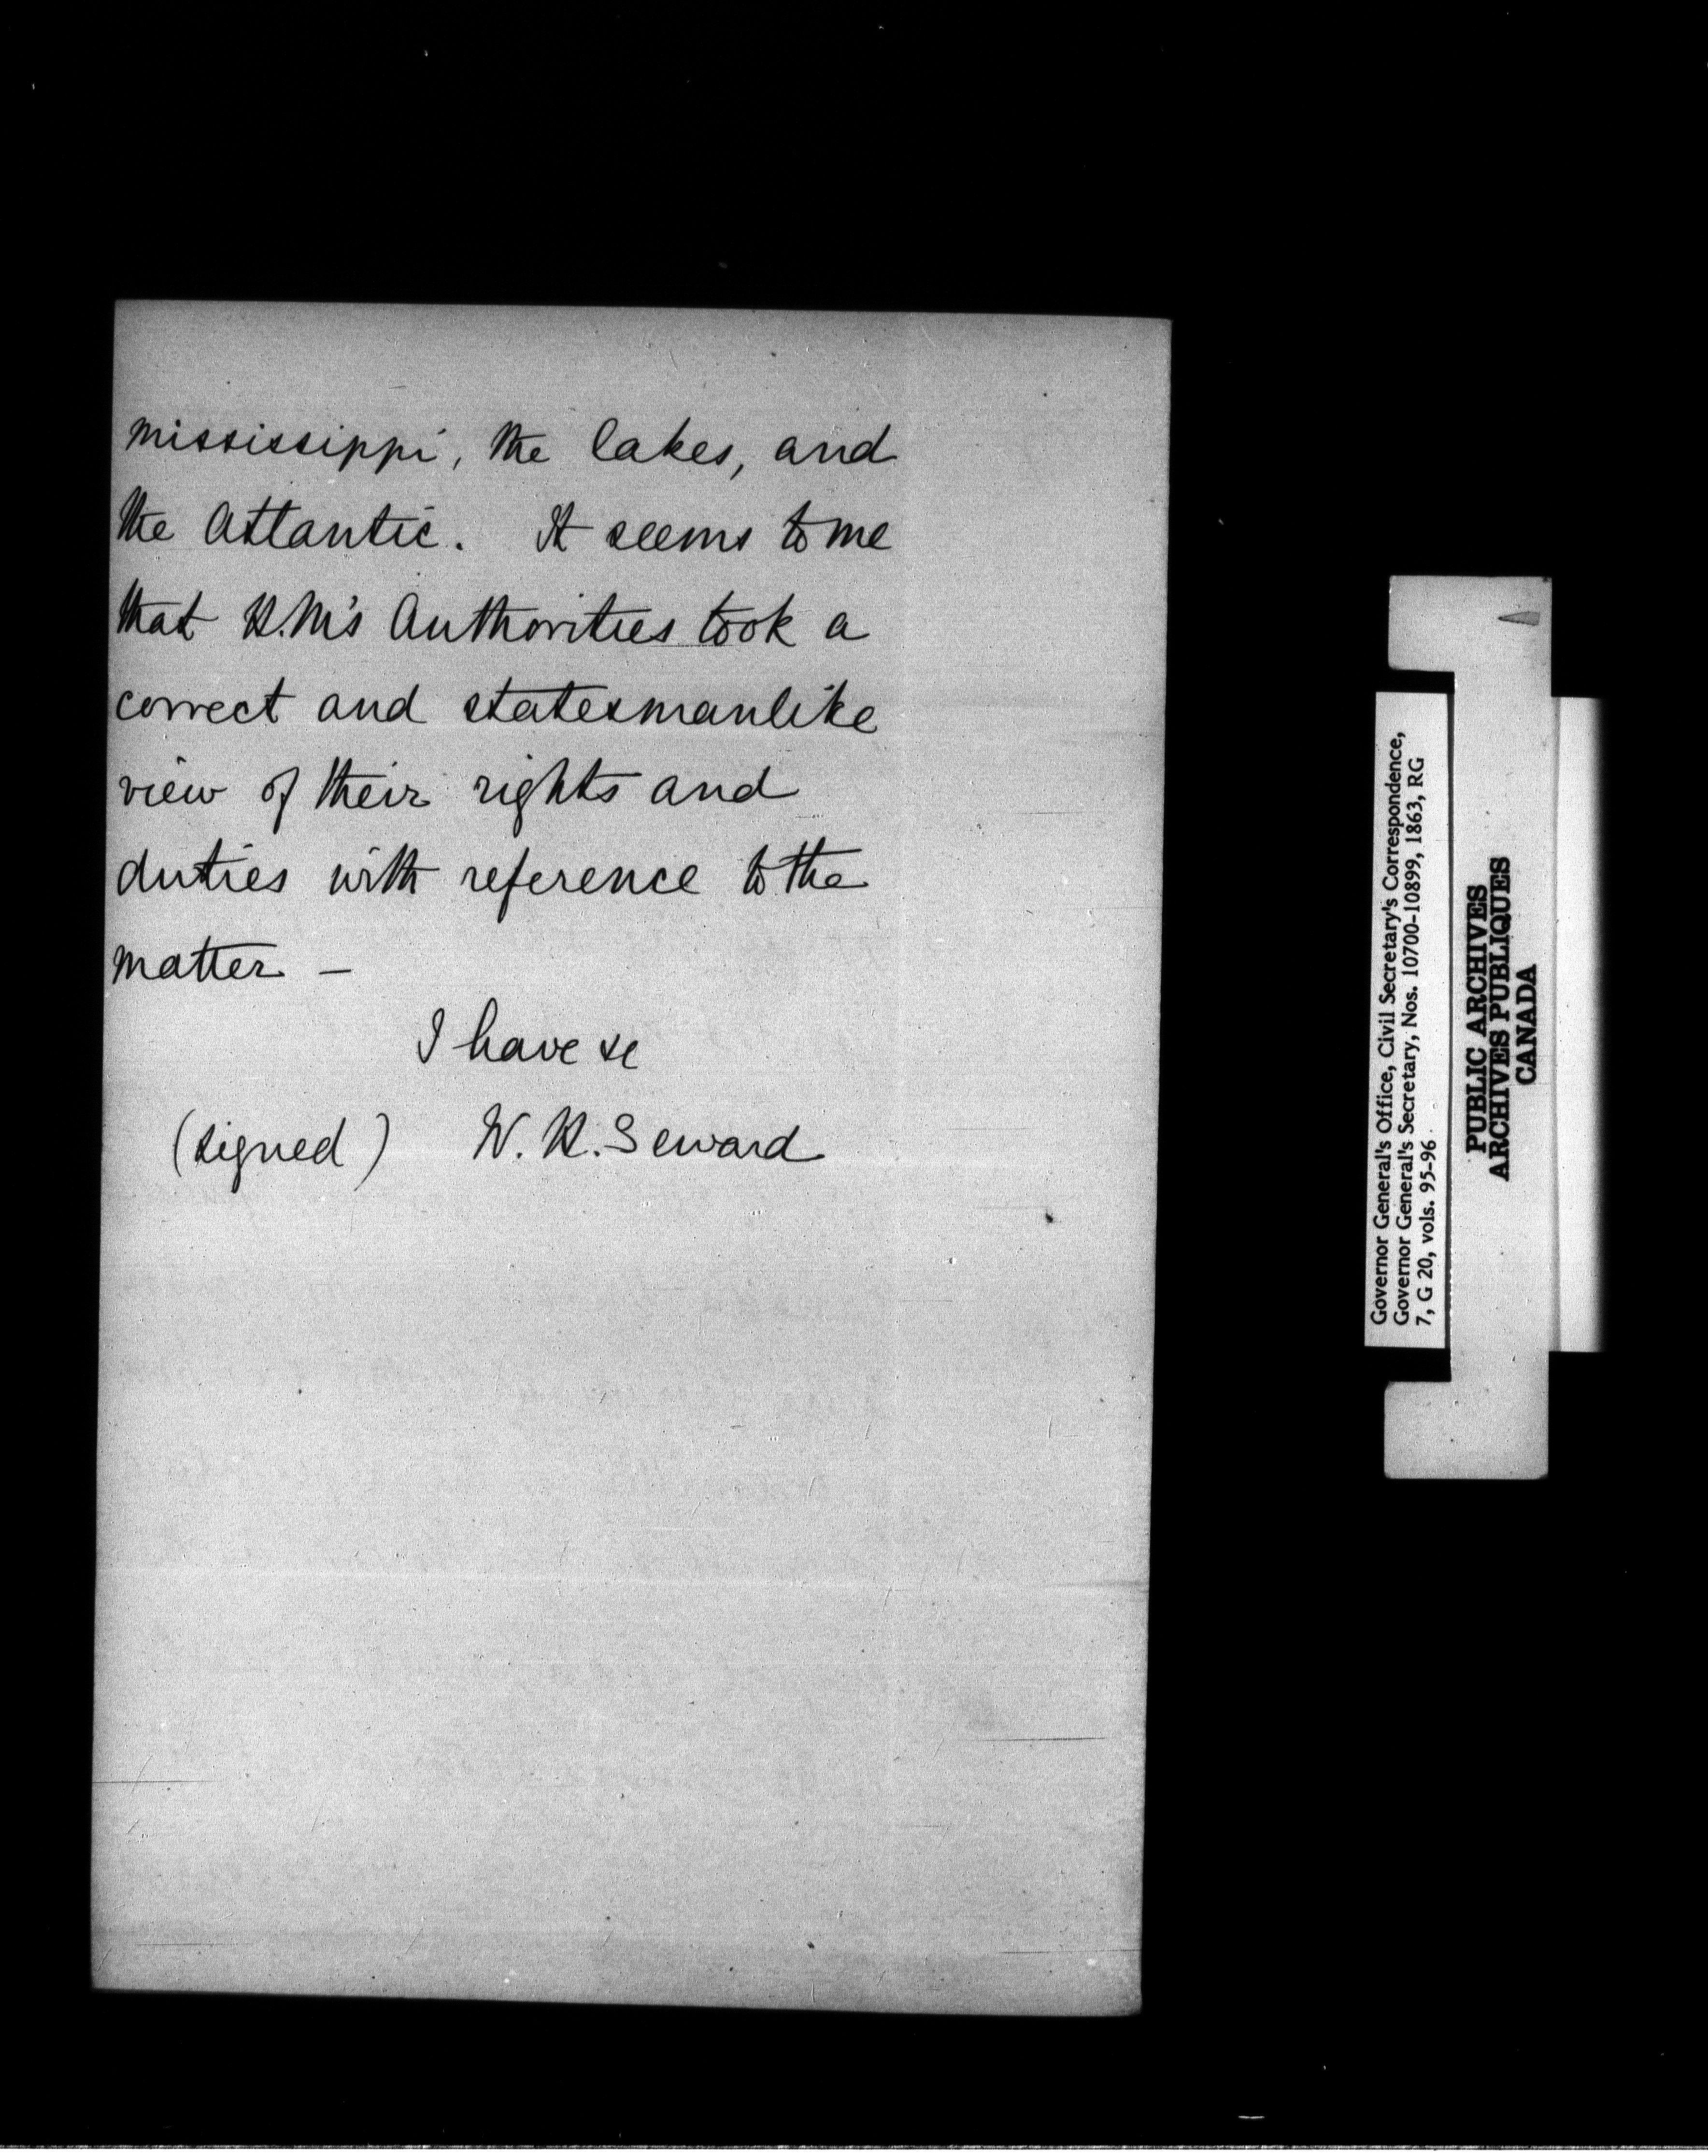 Mississippi, the lakes, and
the Atlantic. It seems to me
that H.M's Authorities took a
correct and statesmanlike
view of their rights and
duties with reference to the
matter —
I have &c
(signed) W. H. Seward
Governor General's Office, Civil Secretary's Correspondence,
Governor General's Secretary, Nos. 10700-10899, 1863, RG
7, G 20, vols. 95-96
PUBLIC ARCHIVES
ARCHIVES PUBLIQUES
CANADA